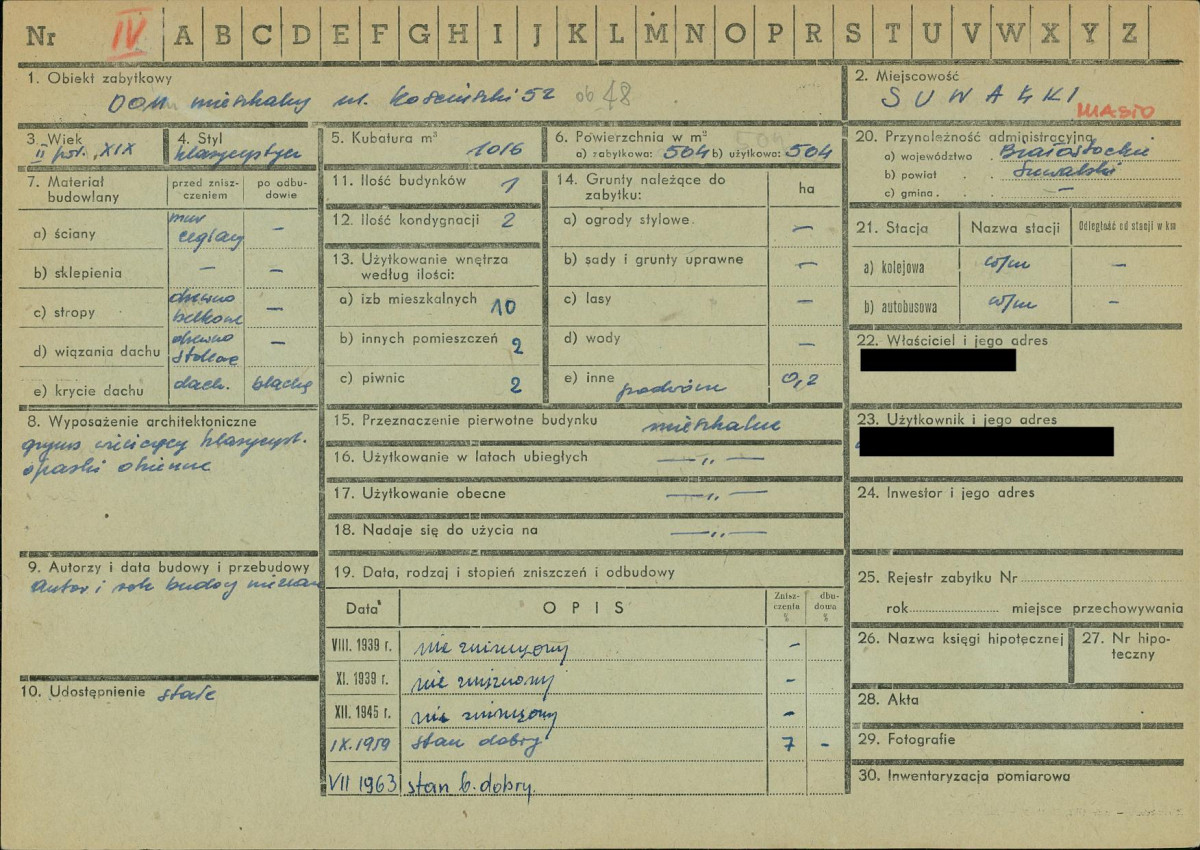 Nr IV A B C D E F G H I J K L M N O P R S T U V W X Y Z
1. Obiekt zabytkowy
Dom mieszkalny ul. Kościuszki 52 ob 48
2. Miejscowość
SUWAŁKI
MIASTO
3. Wiek
II poł. XIX
4. Styl
klasycystycz
5. Kubatura m³
1016
6. Powierzchnia w m²
a) zabytkowa: 504 b) użytkowa: 504
20. Przynależność administracyjna
a) województwo Białostockie
b) powiat Suwalski
c) gmina –
7. Materiał budowlany
przed zniszczeniem
po odbudowie
a) ściany mur ceglany –
b) sklepienia – –
c) stropy drewno belkowe –
d) wiązania dachu drewno stolcowe –
e) krycie dachu dach. blachą
11. Ilość budynków 1
12. Ilość kondygnacji 2
13. Użytkowanie wnętrza
według ilości:
a) izb mieszkalnych 10
b) innych pomieszczeń 2
c) piwnic 2
14. Grunty należące do
zabytku:
ha
a) ogrody stylowe –
b) sady i grunty uprawne –
c) lasy –
d) wody –
e) inne podwórze 0,2
21. Stacja Nazwa stacji Odległość od stacji w km
a) kolejowa w/m –
b) autobusowa w/m –
22. Właściciel i jego adres
8. Wyposażenie architektoniczne
gzyms wieńczący klasycyst.
opaski okienne
15. Przeznaczenie pierwotne budynku mieszkalne
16. Użytkowanie w latach ubiegłych — „ —
17. Użytkowanie obecne — „ —
18. Nadaje się do użycia na — „ —
23. Użytkownik i jego adres
24. Inwestor i jego adres
9. Autorzy i data budowy i przebudowy
Autor i rok budowy nieznan
10. Udostępnienie stałe
19. Data, rodzaj i stopień zniszczeń i odbudowy
Data OPIS Zniszczenia % dbudowa %
VIII. 1939 r. nie zniszczony –
XI. 1939 r. nie zniszczony –
XII. 1945 r. nie zniszczony –
IX. 1959 stan dobry 7 –
VII 1963 stan b. dobry.
25. Rejestr zabytku Nr
rok miejsce przechowywania
26. Nazwa księgi hipotecznej
27. Nr hipoteczny
28. Akta
29. Fotografie
30. Inwentaryzacja pomiarowa